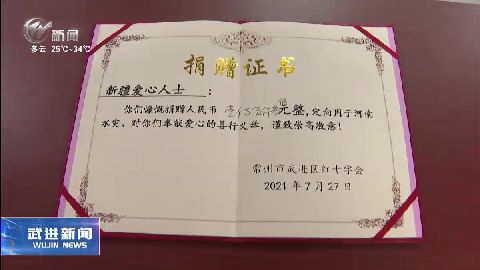 新闻
多云 25℃~34℃
捐赠证书
新疆爱心人士:
你们慷慨捐赠人民币 元整,定向用于河南
水灾。对你们奉献爱心的善行义举,谨致崇高敬意!
常州市武进区红十字会
2021年7月27日
武进新闻
WUJIN NEWS